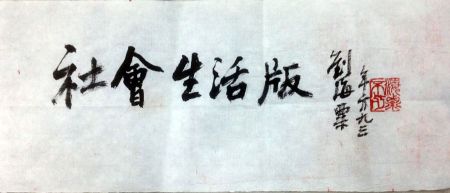 社會生活版
劉海粟
年方九三